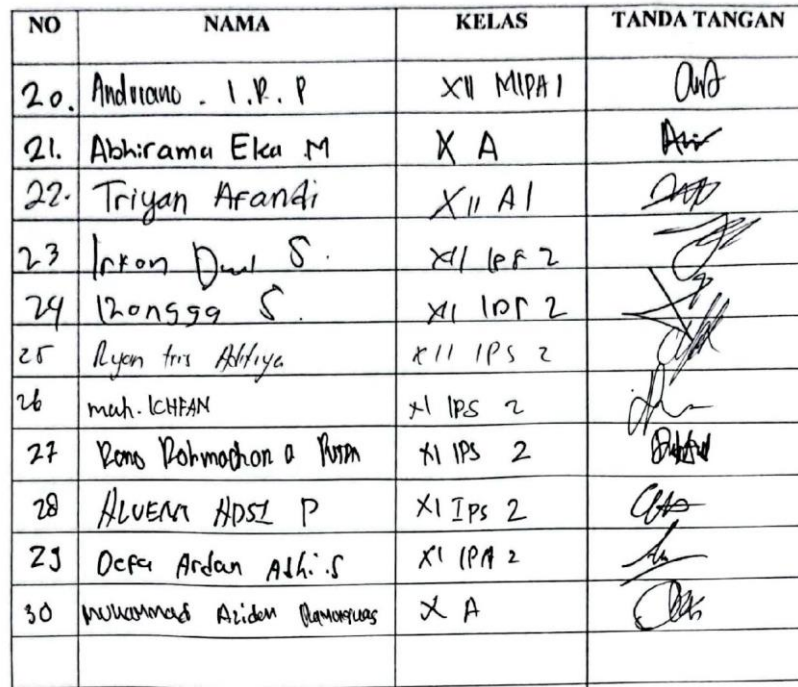 NO NAMA KELAS TANDA TANGAN
20. Andriano . I.R.P XII MIPA 1
21. Abhirama Eka M X A
22. Triyan Afandi XII A1
23 S. XII IPS 2
24 Rongga S. XII IPS 2
25 Ryan tris Aditiya XII IPS 2
26 moh. ICHFAN XI IPS 2
27 Rohmadhon a Putra XI IPS 2
28 P XI IPS 2
29 Defa Ardan XI IPA 2
30 Muhammad Aziden X A